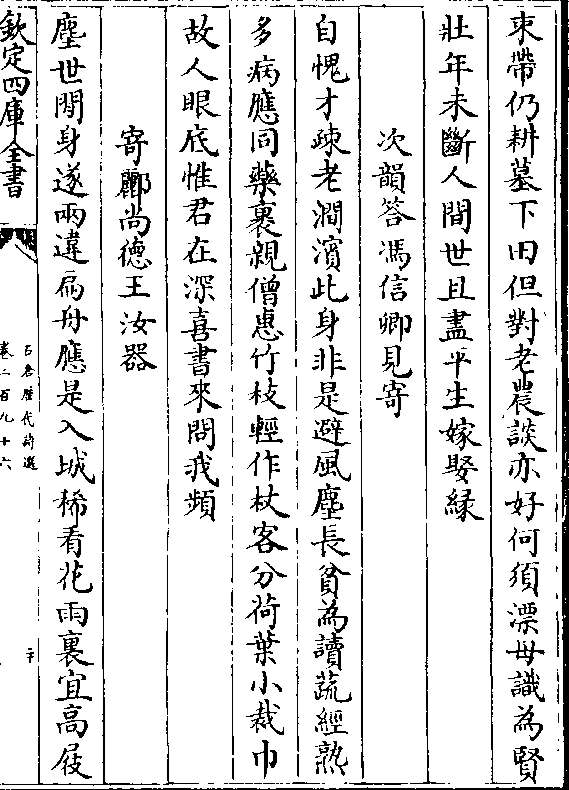 束帶仍耕墓下田但對老農談亦好何須漂母識為賢
壯年未斷人間世且盡平生嫁娶緣
次韻答馮信卿見寄
自愧才疎老澗濱此身非是避風塵長貧為讀蔬經熟
多病應同藥裹親僧惠竹枝輕作杖客分荷葉小裁巾
故人眼底惟君在深喜書來問我頻
寄酈尚德王汝器
塵世閒身遂兩違扁舟應是入城稀看花雨裏宜高屐
欽定四庫全書
石倉歷代詩選
卷二百九十六